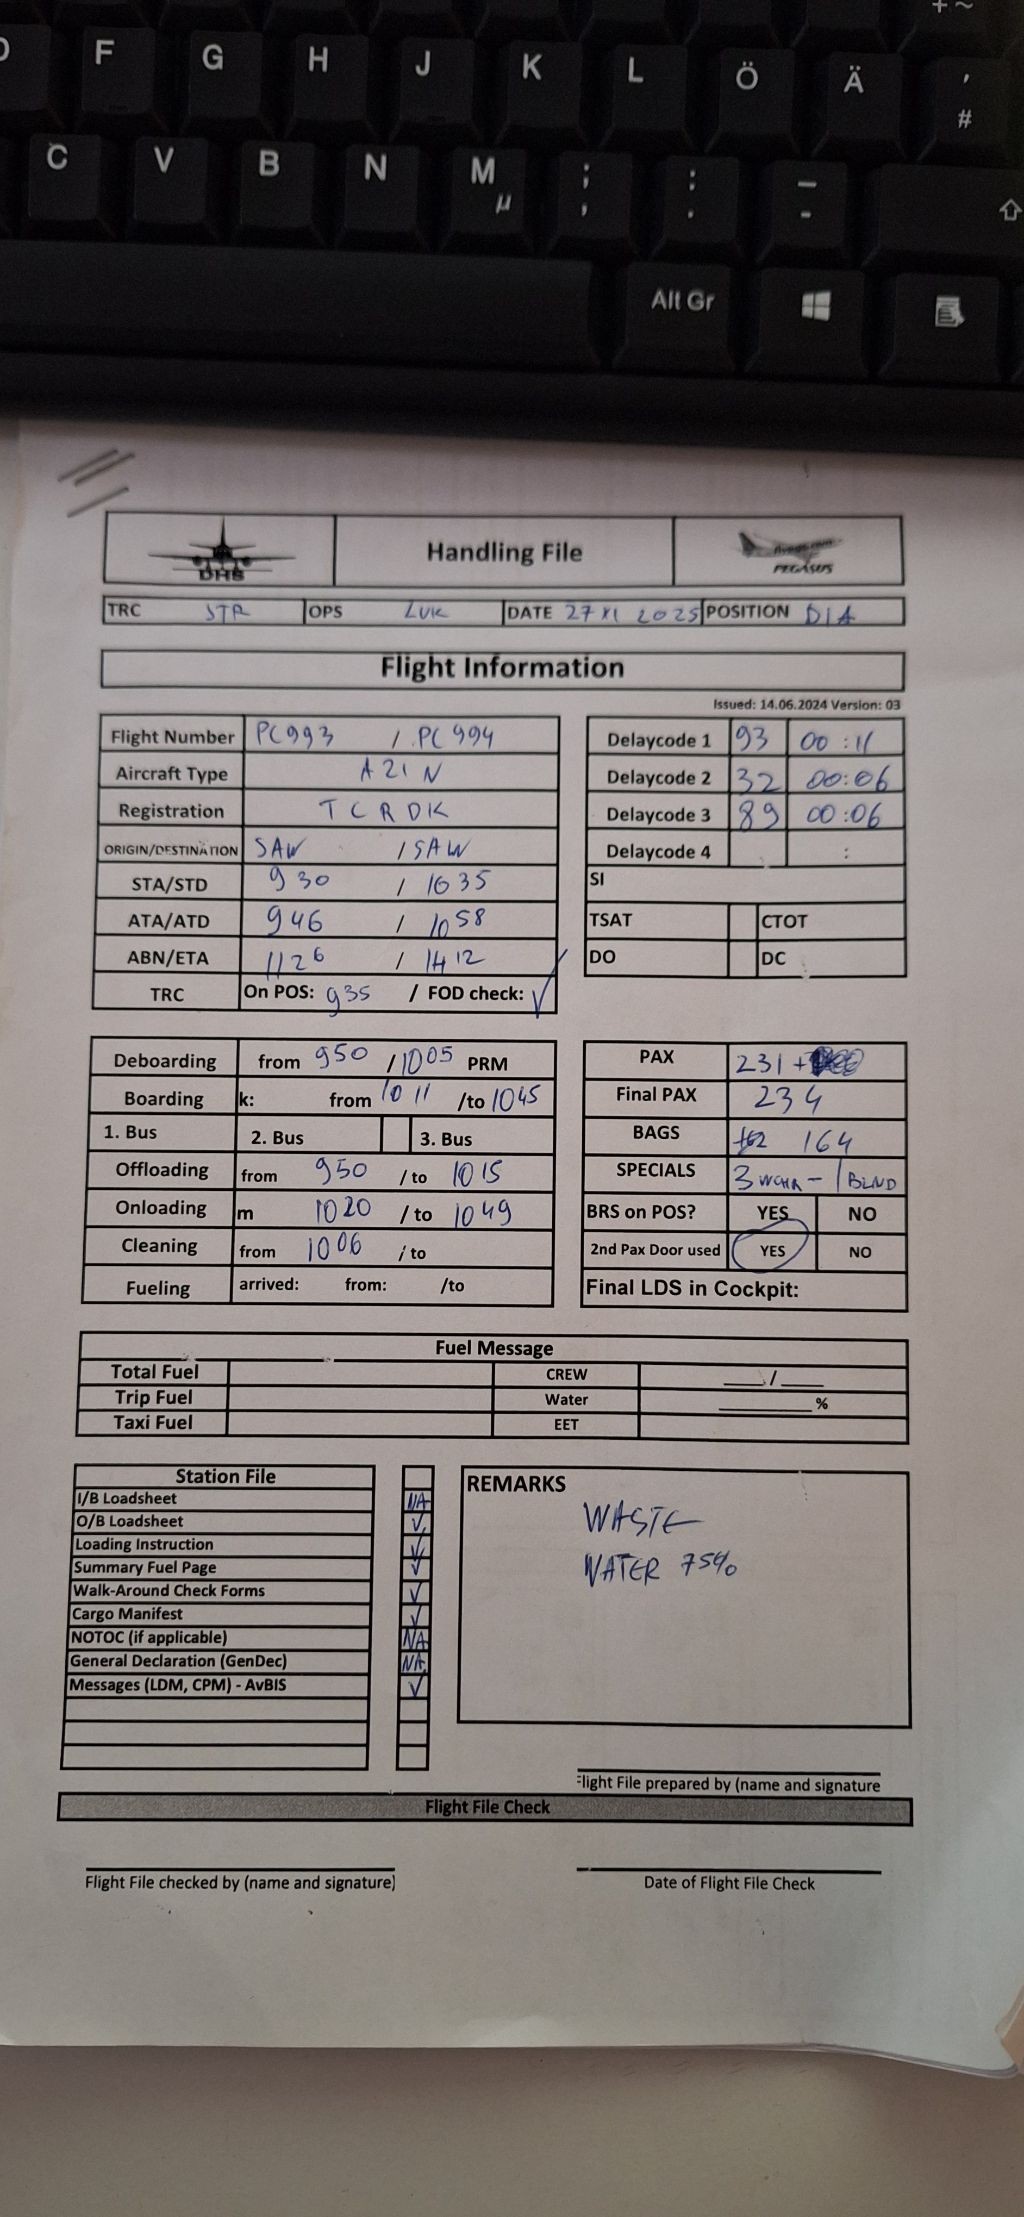 F G H J K L Ö Ä ' #
+ ~
C V B N M µ ; , : . _ -
Alt Gr
DHS Handling File PEGASUS
TRC STR OPS LUK DATE 27 XI 2025 POSITION
Flight Information
Issued: 14.06.2024 Version: 03
Flight Number PC993 / PC994
Aircraft Type A21N
Registration TCRDK
ORIGIN/DESTINATION SAW / SAW
STA/STD 930 / 1035
ATA/ATD 946 / 1058
ABN/ETA 1126 / 1412
TRC On POS: 935 / FOD check: √
Delaycode 1 93 00:11
Delaycode 2 32 00:06
Delaycode 3 89 00:06
Delaycode 4 :
SI
TSAT CTOT
DO DC
Deboarding from 950 / 1005 PRM
Boarding k: from 1011 /to 1045
1. Bus 2. Bus 3. Bus
Offloading from 950 / to 1015
Onloading m 1020 / to 1049
Cleaning from 1006 / to
Fueling arrived: from: /to
PAX 231 +
Final PAX 234
BAGS 164
SPECIALS 3 WCHR - 1 BLND
BRS on POS? YES NO
2nd Pax Door used YES NO
Final LDS in Cockpit:
Fuel Message
Total Fuel CREW ___/___
Trip Fuel Water ___%
Taxi Fuel EET
Station File
I/B Loadsheet NA
O/B Loadsheet √
Loading Instruction √
Summary Fuel Page √
Walk-Around Check Forms √
Cargo Manifest √
NOTOC (if applicable) NA
General Declaration (GenDec) NA
Messages (LDM, CPM) - AvBIS √
REMARKS
WASTE
WATER 75%
Flight File prepared by (name and signature
Flight File Check
Flight File checked by (name and signature)
Date of Flight File Check